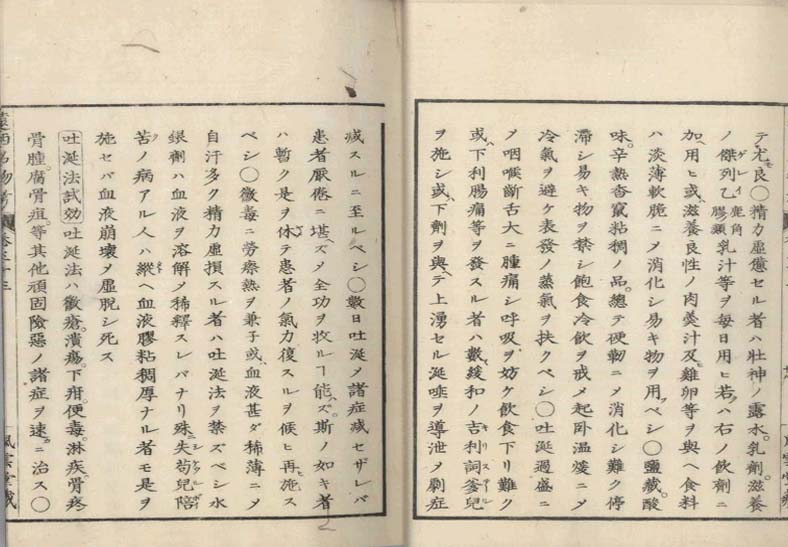 テ尤良○精力虚憊セル者ハ壮神ノ露水。乳劑。滋養
ノ傑列乙鹿角膠類乳汁等ヲ毎日用ヒ若クハ右ノ飲劑ニ
加ヘ用ヒ或ハ滋養良性ノ肉羹汁及ヒ雞卵等ヲ與ヘ食料
ハ淡薄軟脆ニメ消化シ易キ物ヲ用フベシ○鹽藏。酸
味。辛熱香竄粘稠ノ品。總テ硬韌ニメ消化シ難ク停
滞シ易キ物ヲ禁シ飽食冷飲ヲ戒メ起卧温煖ニメ
冷氣ヲ避ケ表發ノ蒸氣ヲ扶クベシ○吐涎過盛ニ
メ咽喉齗舌大ニ腫痛シ呼吸ヲ妨ケ飲食下リ難ク
或ハ下利腸痛等ヲ發スル者ハ數緩和ノ吉利詞釜兒
ヲ施シ或ハ下劑ヲ與ヘテ上湧セル涎唾ヲ導泄メ劇症
減スルニ至ルベシ○數日吐涎メ諸症減セザレバ
患者厭倦ニ堪ズメ全功ヲ收ルヿ能ズ。斯ノ如キ者
ハ暫ク是ヲ休テ患者ノ氣力復スルヲ候ヒ再施ス
ベシ○黴毒ニ労瘵熱ヲ兼子或ハ血液甚ダ稀薄ニメ
自汗多ク精力虚損スル者ハ吐涎法ヲ禁ズベシ水
銀劑ハ血液ヲ溶解メ稀釋スレバナリ殊失苟兒陪
苦ノ病アル人ハ縦ヘ血液膠粘稠厚ナル者モ是ヲ
施セバ血液崩壊メ虚脱シ死ス
吐涎法試効 吐涎法ハ黴瘡。潰瘍。下疳。便毒。淋疾。骨疼
骨腫。腐骨疽。等其他頑固險惡ノ諸症ヲ速ニ治ス○